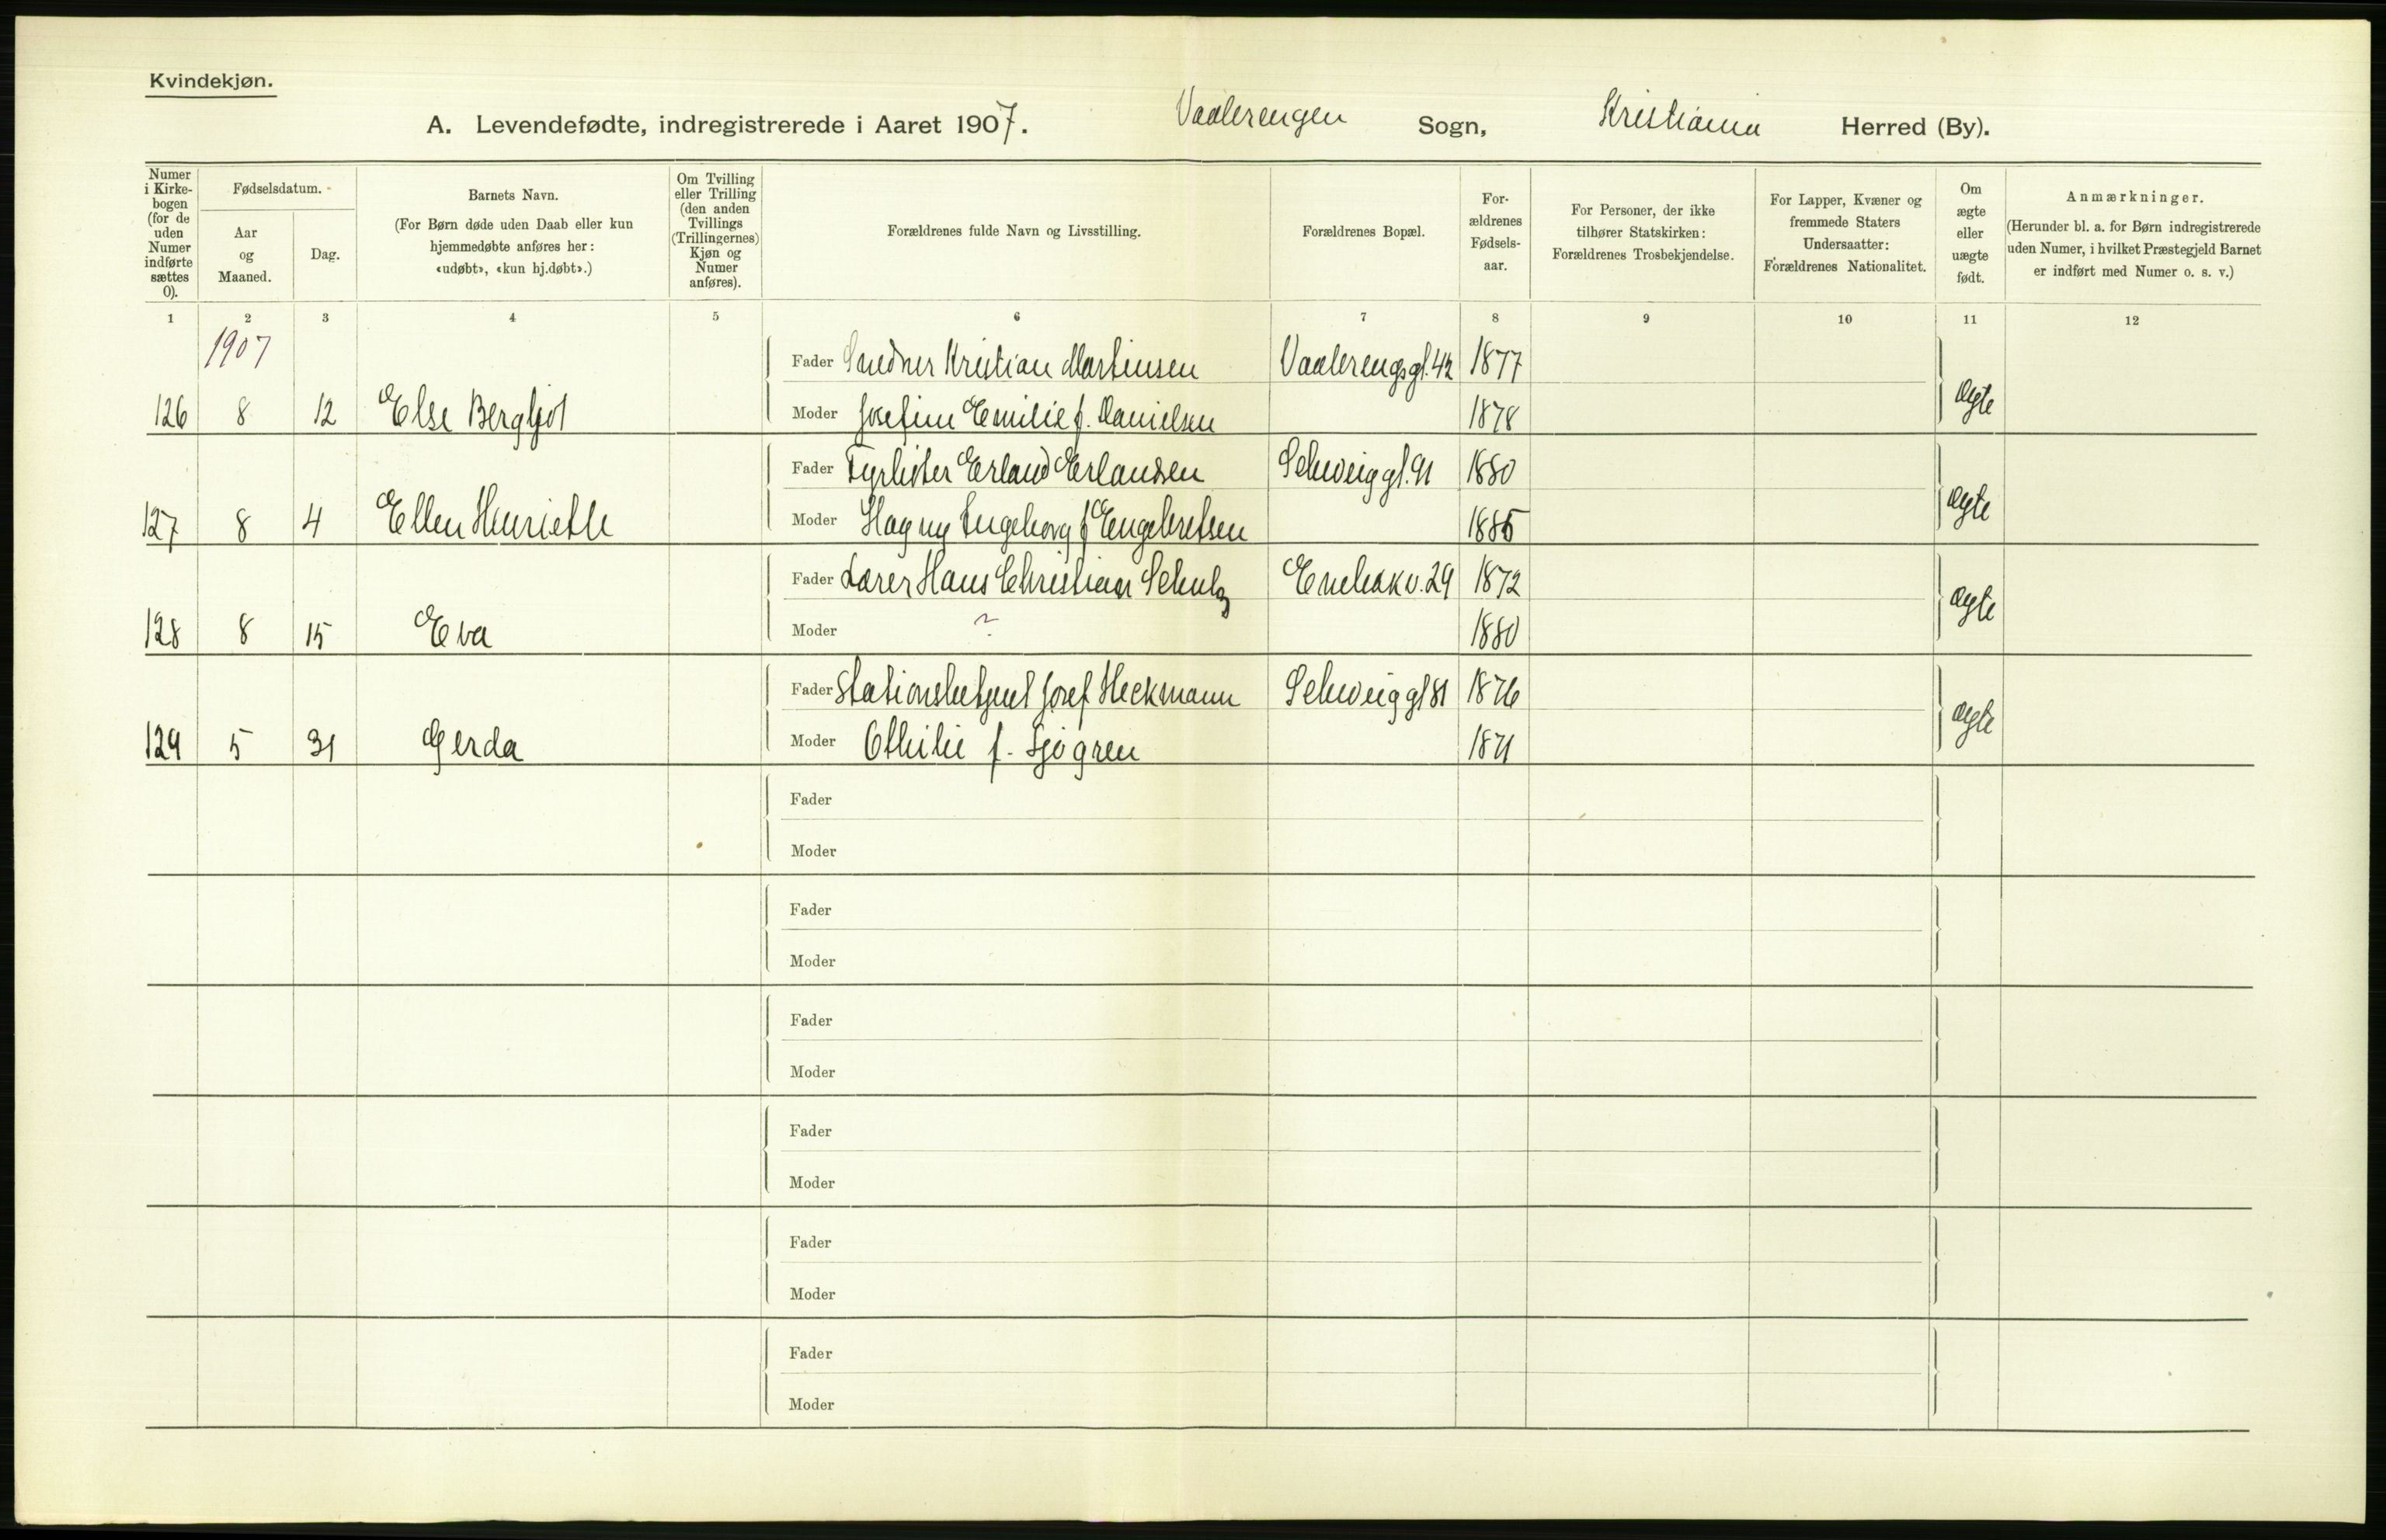 Kvindekjøn.
A. Levendefødte, indregistrerede i Aaret 1907. Vaalerengen Sogn, Kristiania Herred (By).
Numer i Kirke-bogen (for de uden Numer indførte sættes 0).
Fødselsdatum.
Aar og Maaned.
Dag.
Barnets Navn.
(For Børn døde uden Daab eller kun hjemmedøbte anføres her: «udøbt», «kun hj.døbt».)
Om Tvilling eller Trilling (den anden Tvillings (Trillingernes) Kjøn og Numer anføres).
Forældrenes fulde Navn og Livsstilling.
Forældrenes Bopæl.
For-ældrenes Fødsels-aar.
For Personer, der ikke tilhører Statskirken: Forældrenes Trosbekjendelse.
For Lapper, Kvæner og fremmede Staters Undersaatter: Forældrenes Nationalitet.
Om ægte eller uægte født.
Anmærkninger.
(Herunder bl. a. for Børn indregistrerede uden Numer, i hvilket Præstegjeld Barnet er indført med Numer o. s. v.)
1 2 3 4 5 6 7 8 9 10 11 12
1907
Fader Snedker Kristian Martinsen Vaalerengsgt. 42 1877
126 8 12 Else Bergljot Moder Josefine Emilie f. Danielsen 1878 ægte
Fader Fyrbøter Erland Erlandsen Schweiggt. 91 1880
127 8 4 Ellen Henriette Moder Hagny Ingeborg f Engebretsen 1885 ægte
Fader Lærer Hans Christian Schulz Enebakv. 29 1872
128 8 15 Eva Moder ? 1880 ægte
Fader Stationsbetjent Josef Heckmann Schweiggt 81 1876
129 5 31 Gerda Moder Othilie f. Sjøgren 1871 ægte
Fader
Moder
Fader
Moder
Fader
Moder
Fader
Moder
Fader
Moder
Fader
Moder